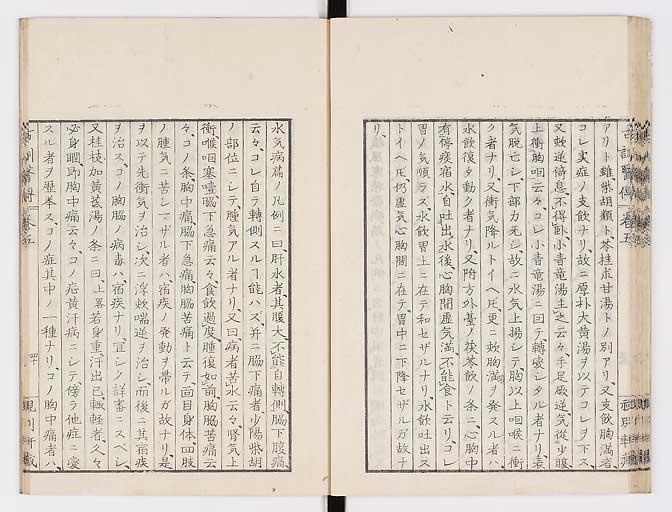 アリト雖柴胡類ト苓桂朮甘湯トノ別アリ、又支飲胸満者
コレ実症ノ支飲ナリ、故ニ厚朴大黄湯ヲ以テコレヲ下ス、
又欬逆倚息、不得臥、小青竜湯主之云々、手足厥逆気従少腹
上衝胸咽云々、コレ小青竜湯ニ回テ轉変シタル者ナリ、表
気脱亡シ、下部力死シ、故ニ水気上揚シテ、胸以上咽喉ニ衝
ク者ナリ、又衝気降ルトイヘ𪜈、更ニ欬胸満ヲ発スル者ハ、
水飲復タ動ク者ナリ、又附方外臺ノ茯苓飲ノ条ニ、心胸中
有停痰宿水、自吐出水後、心胸間虚気満、不能食ト云リ、コレ
胃ノ気順ラス、水飲胃上ニ在テ和セザルナリ、水飲吐出ス
トイヘ𪜈、仍虚気心胸間ニ在テ、胃中ニ下降セザルガ故ナ
リ、
水気病篇ノ凡例ニ曰、肝水者、其腹大、不能自轉側、脇下腹痛
云々、コレ自ラ轉側スルヿ能ハズ、并ニ脇下痛者、少陽柴胡
ノ部位ニシテ、腫気アル者ナリ、又曰、病者苦水云々、腎気上
衝、喉咽塞噎、脇下急痛云々、食飲過度、腫復如前、胸脇苦痛云
々、コノ条胸中痛、脇下急痛、胸脇苦痛ト云テ、面目身体四肢
ノ腫気ニ苦シマザル者ハ、宿疾ノ発動ヲ帯ルガ故ナリ、是
ヲ以テ先衝気ヲ治シ、次ニ浮欬喘逆ヲ治シ、而後ニ其宿疾
ヲ治ス、コノ胸脇ノ病毒ハ宿疾ナリ、宜シク詳審ニスベシ、
又桂枝加黄芪湯ノ条ニ曰、上畧若身重、汗出已輙軽者、久々
必身瞤、即胸中痛云々、コノ症黄汗病ニシテ、傍ラ他症ニ変
スル者ヲ歴挙ス、コノ症其中ノ一種ナリ、コノ胸中痛者ハ、